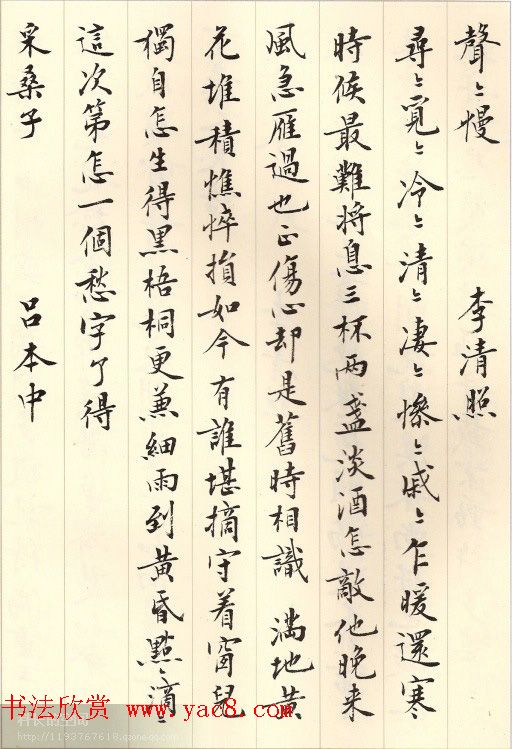 聲〻慢　李清照
尋〻覓〻冷〻清〻凄〻慘〻戚〻乍暖還寒
時候最難將息三杯两盞淡酒怎敵他晚来
風急雁過也正傷心却是舊時相識　滿地黄
花堆積憔悴損如今有誰堪摘守着窗兒
獨自怎生得黑梧桐更兼細雨到黄昏點〻滴〻
這次第怎一個愁字了得
采桑子　吕本中
书法欣赏 www.yac8.com
http://1193767618.qzone.qq.com